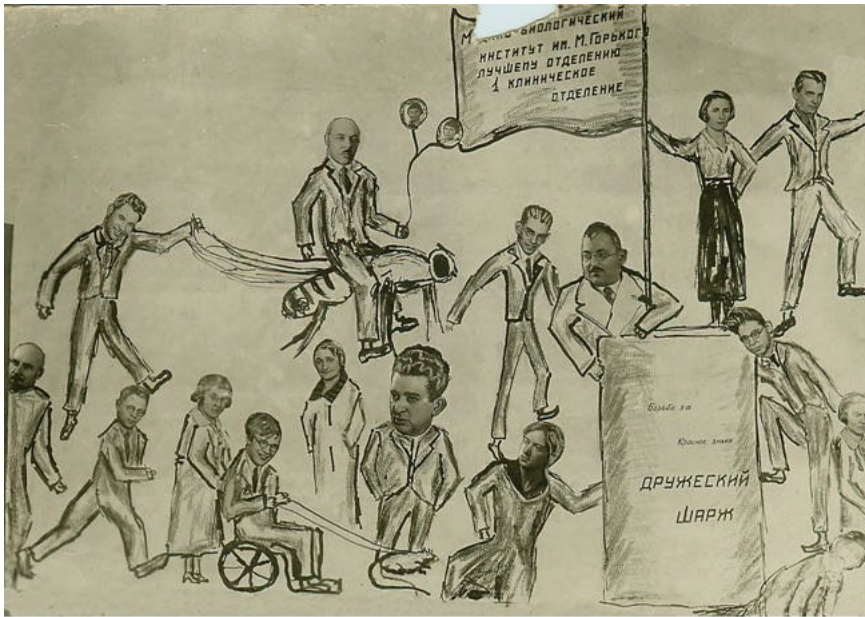 БИОЛОГИЧЕСКИЙ
ИНСТИТУТ ИМ. М. ГОРЬКОГО
ЛУЧШЕМУ ОТДЕЛЕНИЮ
1 КЛИНИЧЕСКОЕ
ОТДЕЛЕНИЕ
Борьба за
Красное знамя
ДРУЖЕСКИЙ
ШАРЖ